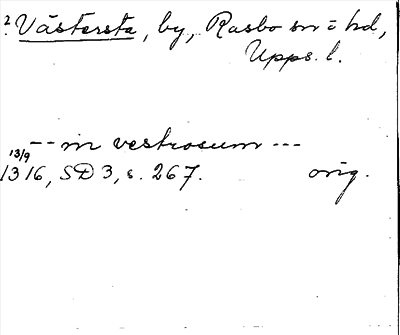 2. Västersta, by, Rasbo sn o hd,
Upps. l.
-- in vestrosum ---
13/9
1316, SD 3, s. 267. orig.